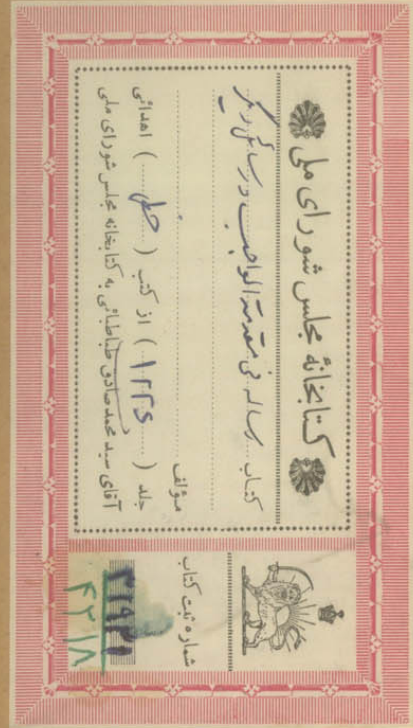 کتابخانهٔ مجلس شورای ملی
کتاب رساله فی مقدمة الواجب و رسائل دیگر
مؤلف
جلد ( ۱۲۲۵ ) از کتب ( خطی ) اهدائی
آقای سید محمد صادق طباطبائی به کتابخانه مجلس شورای ملی
شماره ثبت کتاب
۴۲۱۸